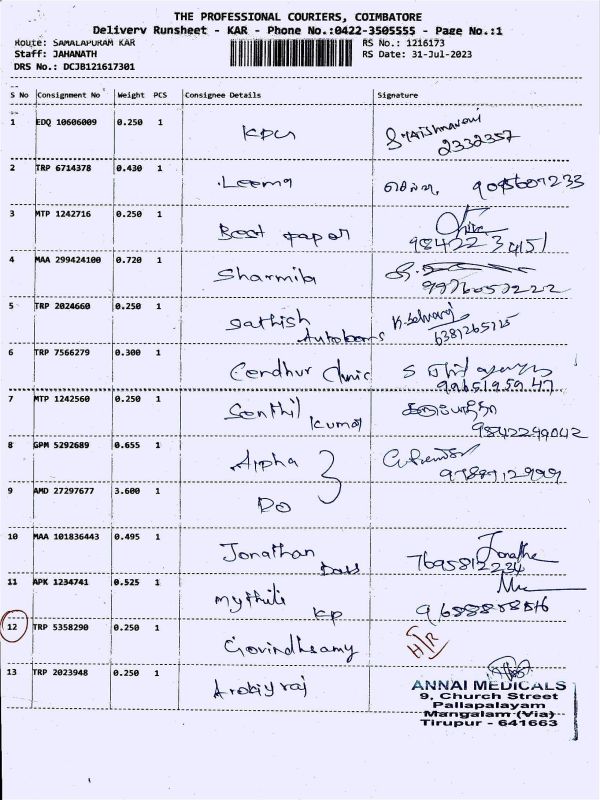 THE PROFESSIONAL COURIERS, COIMBATORE
Delivery Runsheet - KAR - Phone No.:0422-3505555 - Page No.:1
Route: SAMALAPURAM KAR RS No.: 1216173
Staff: JAHANATH RS Date: 31-Jul-2023
DRS No.: DCJB121617301
S No Consignment No Weight PCS Consignee Details Signature
1 EDQ 10606009 0.250 1 KPU
2332357
2 TRP 6714378 0.430 1 Leema
3 MTP 1242716 0.250 1 Best paper
9842234151
4 MAA 299424100 0.720 1 Sharmila
9976057222
5 TRP 2024660 0.250 1 Sathish K. Selvaraj
6381265125
6 TRP 7566279 0.300 1 Cendhur Clinic S
9965195947
7 MTP 1242560 0.250 1 Senthil
Kumar 9842249042
8 GPM 5292689 0.655 1 Alpha
9 AMD 27297677 3.600 1 Do
10 MAA 101836443 0.495 1 Jonathan
Dass 7695812234
11 APK 1234741 0.525 1 Mythili
KP
12 TRP 5358290 0.250 1 Govindhsamy H/R
13 TRP 2023948 0.250 1 Arokiyraj
ANNAI MEDICALS
9, Church Street
Pallapalayam
Mangalam (Via)
Tirupur - 641663